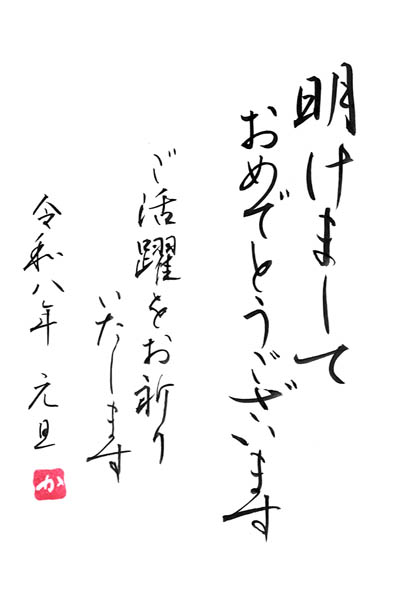 明けまして
おめでとうございます
ご活躍をお祈り
いたします
令和八年 元旦
か